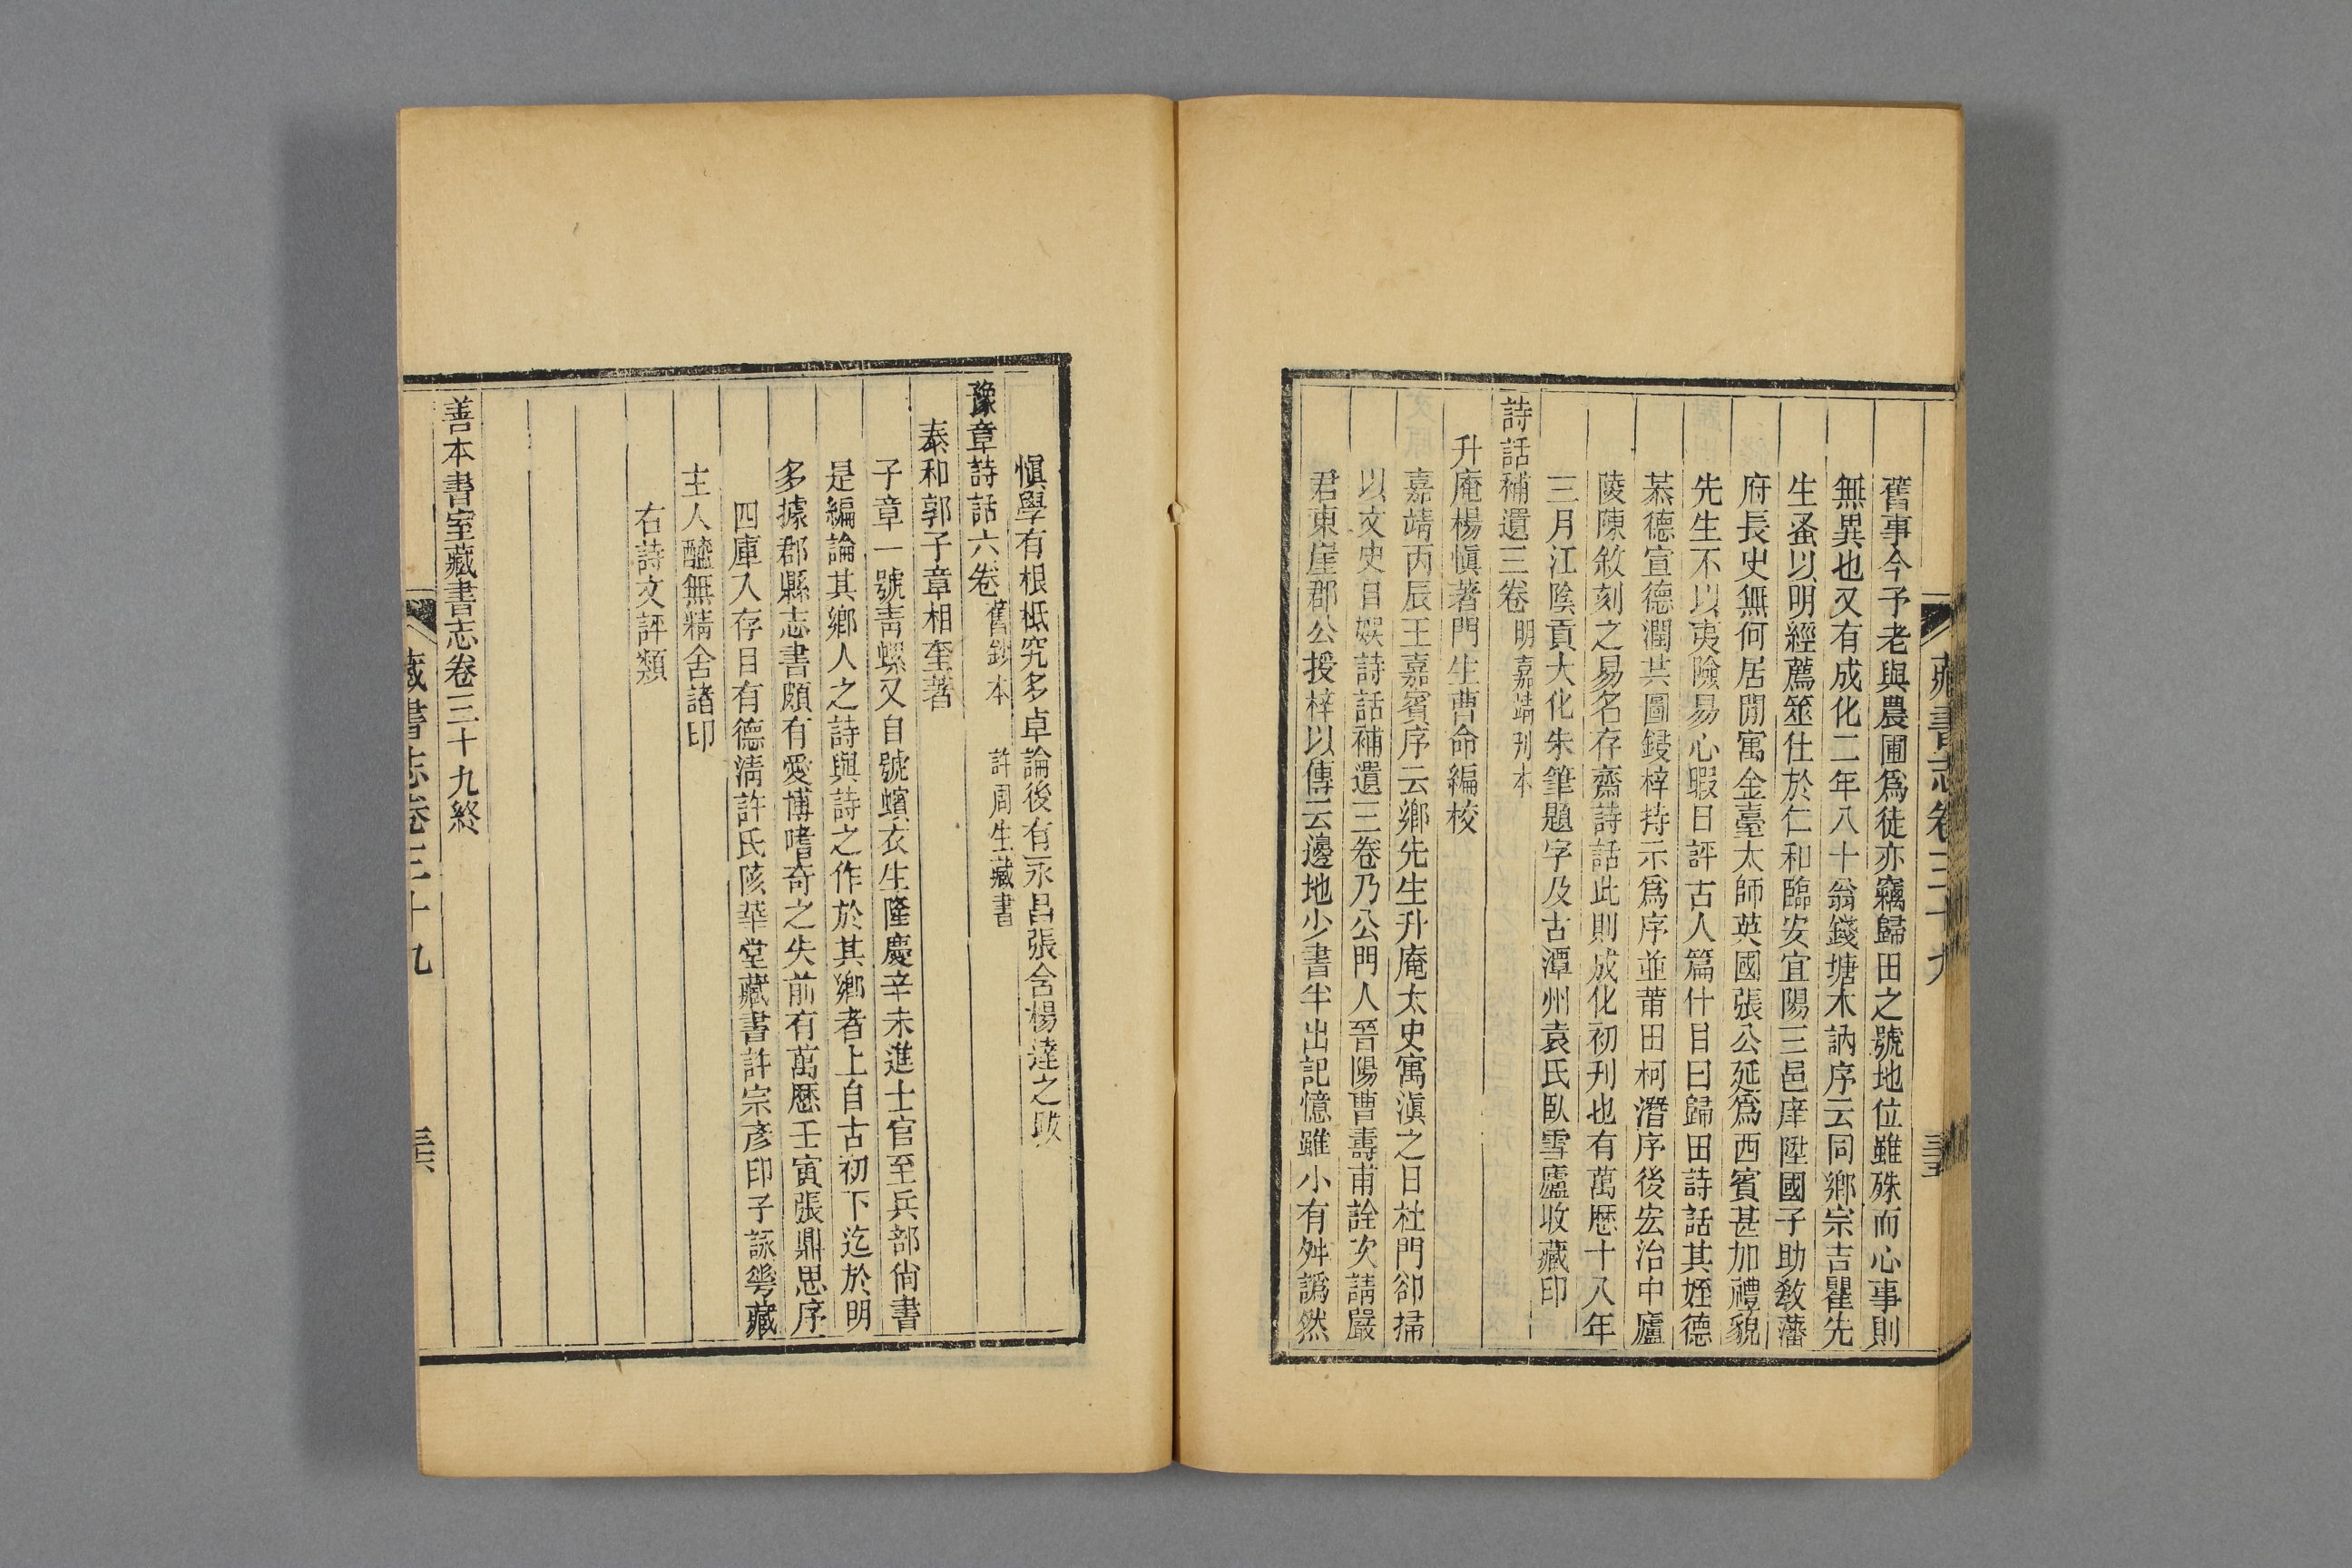 藏書志卷三十九
三五
舊事今予老與農圃爲徒亦竊歸田之號地位雖殊而心事則
無異也又有成化二年八十翁錢塘木訥序云同鄉宗吉瞿先
生蚤以明經薦筮仕於仁和臨安宜陽三邑庠陞國子助敎藩
府長史無何居閒寓金臺太師英國張公延爲西賓甚加禮貌
先生不以夷險易心暇日評古人篇什目曰歸田詩話其姪德
慕德宣德潤共圖鋟梓持示爲序並莆田柯潛序後宏治中廬
陵陳敘刻之易名存齋詩話此則成化初刋也有萬歷十八年
三月江陰貢大化朱筆題字及古潭州袁氏臥雪廬收藏印
詩話補遺三卷 明嘉靖刋本
升庵楊愼著門生曹命編校
嘉靖丙辰王嘉賓序云鄉先生升庵太史寓滇之日杜門卻掃
以文史自娛詩話補遺三卷乃公門人晉陽曹壽甫詮次請嚴
君東崖郡公授梓以傳云邊地少書半出記憶雖小有舛譌然
愼學有根柢究多卓論後有永昌張含楊達之跋
豫章詩話六卷 舊鈔本 許周生藏書
泰和郭子章相奎著
子章一號靑螺又自號蠙衣生隆慶辛未進士官至兵部尙書
是編論其鄉人之詩與詩之作於其鄉者上自古初下迄於明
多據郡縣志書頗有愛博嗜奇之失前有萬歷壬寅張鼎思序
四庫入存目有德淸許氏陔華堂藏書許宗彥印子詠甹藏
主人醯無精舍諸印
右詩文評類
善本書室藏書志卷三十九終
藏書志卷三十九
三六